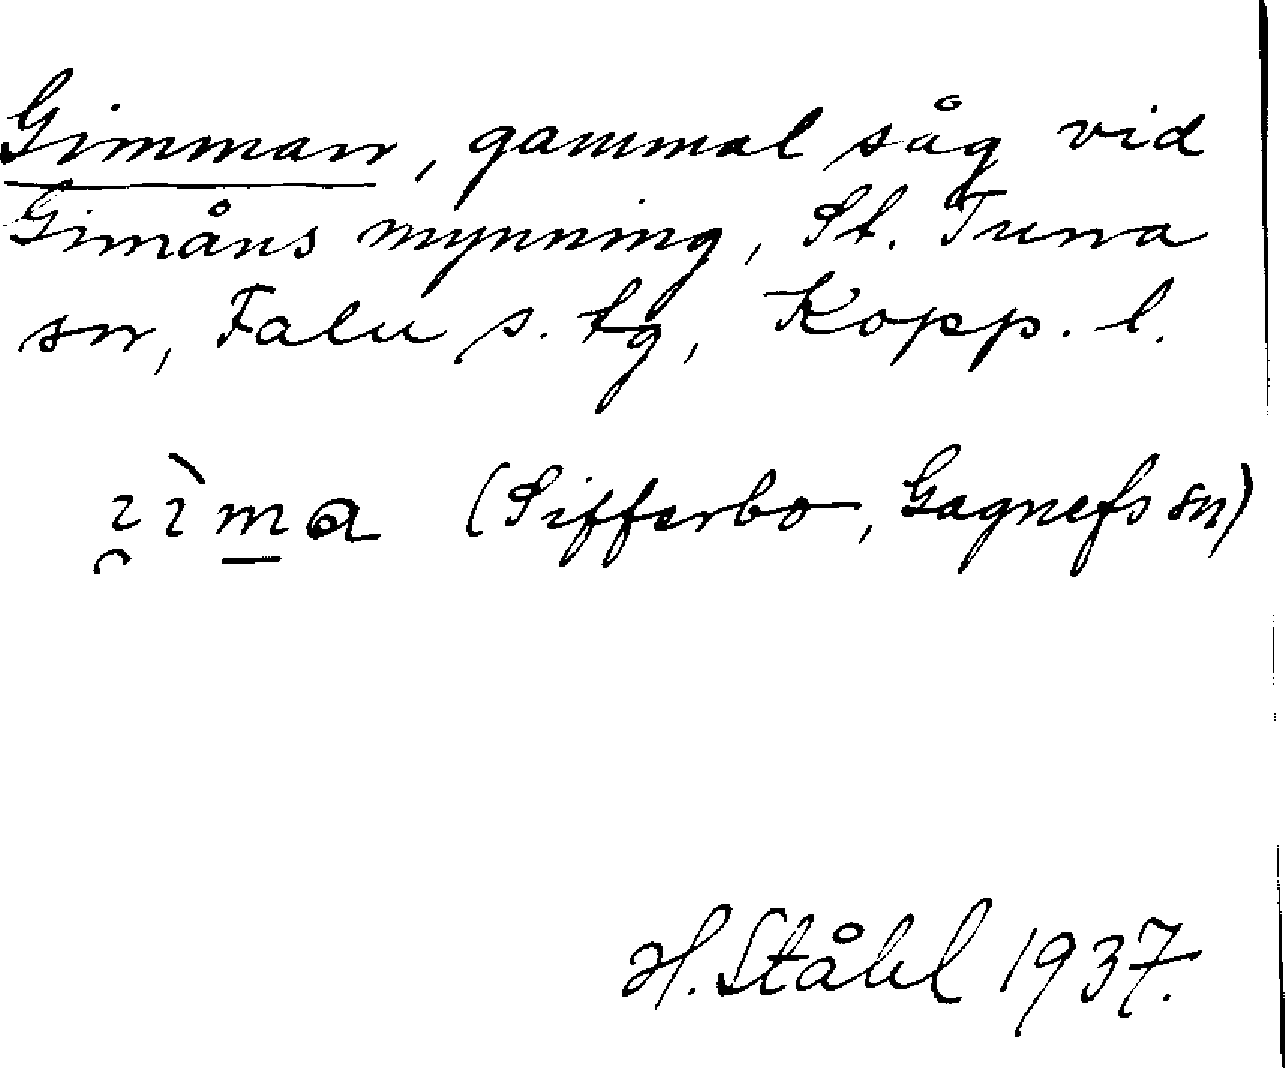 Gimman, gammal såg vid
Gimåns mynning, St. Tuna
sn, Falu s. tg, Kopp. l.
(Sifferbo, Gagnefs sn)
H. Ståhl 1937.